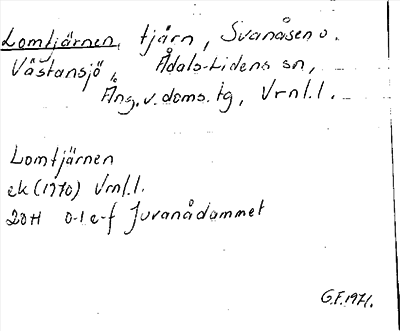 Lomtjärnen, tjärn, Svanåsen o.
Västansjö, Ådals-Lidens sn,
Ång. v. doms. tg, Vrnl. l.
Lomtjärnen
ek (1970) Vrnl. l.
20H 0-1 e-f Juvanådammet
G.F. 1971.